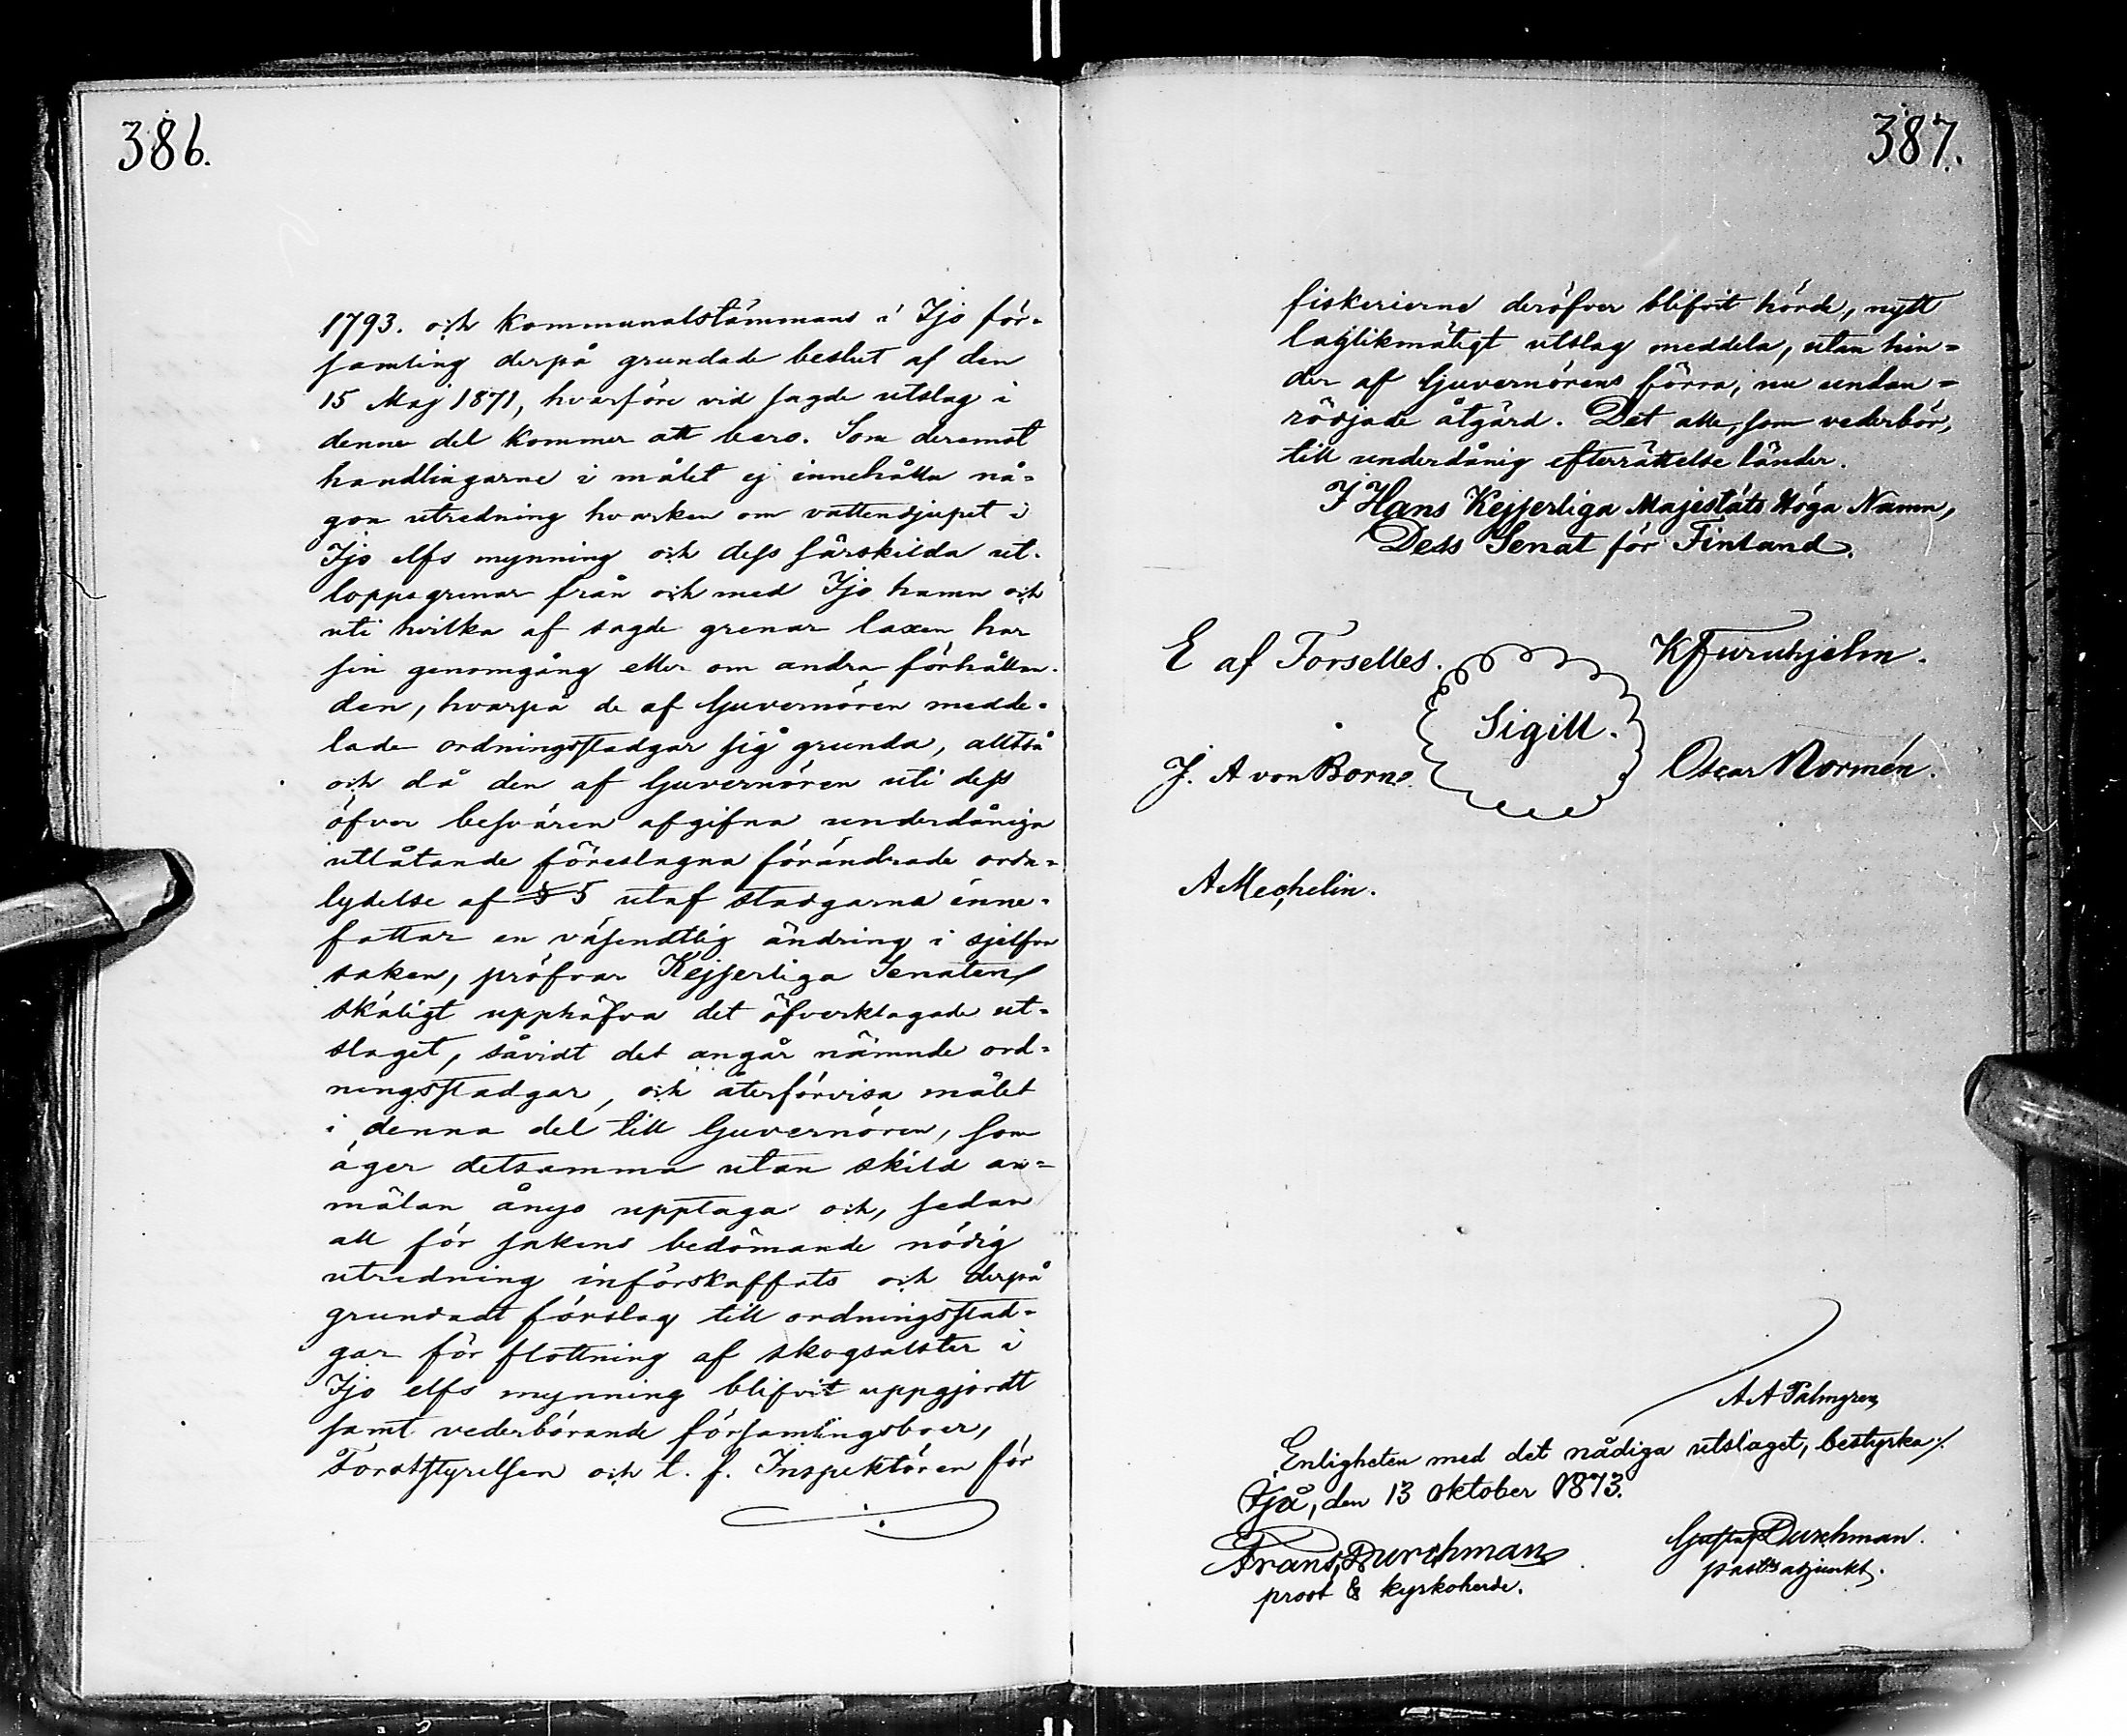 386.
1793. och Kommunalstämmans i Ijo för-
samling derpå grundade beslut af den
15 Maj 1871, hvarföre vid sagde utslag i
denna del kommer att bero. Som deremot
handlingarne i målet ej innehålla nå-
gon utredning hvarken om vattendjupet i
Ijo elfs mynning och dess särskilda ut-
loppsgrenar från och med Ijo hamn och
uti hvilka af sagde grenar laxen har
sin genomgång eller om andra förhållan-
den, hvarpå de af Guvernören medde-
lade ordningsstadgar sig grunda, alltså
och då den af Guvernören uti dess
öfver besvären afgifna underdåniga
utlåtande föreslagna förändrade orda-
lydelse af § 5 utaf stadgarna inne-
fattar en väsendtlig ändring i sjelfva
saken, pröfvar Kejserliga Senaten
skäligt upphäfva det öfverklagade ut-
slaget, såvidt det angår nämnde ord-
ningsstadgar, och återförvisa målet
i denna del till Guvernören, som
äger detsamma utan skild an-
mälan ånyo upptaga och, sedan
all för sakens bedömande nödig
utredning införskaffats och derpå
grundadt förslag till ordningsstad-
gar för flottning af skogsalster i
Ijo elfs mynning blifvit uppgjordt
samt vederbörande församlingsboer,
Forststyrelsen och t. f. Inspektören för
387.
fiskerierne deröfver blifvit hörde, nytt
laglikmätigt utslag meddela, utan hin-
der af Guvernörens förra, nu undan-
rödjade åtgärd. Det alle, som vederbör,
till underdånig efterrättelse länder.
I Hans Kejserliga Majestäts Höga Namn,
Dess Senat för Finland.
E af Forselles.
K Furuhjelm.
Sigill.
J. A von Born.
Oscar Norrmén.
A Mechelin.
A A Palmgren
Enligheten med det nådiga utslaget, bestyrka;
Ijå, den 13 Oktober 1873.
Frans Durchman
Gustaf Durchman.
prost & kyrkoherde.
past:s adjunkt.